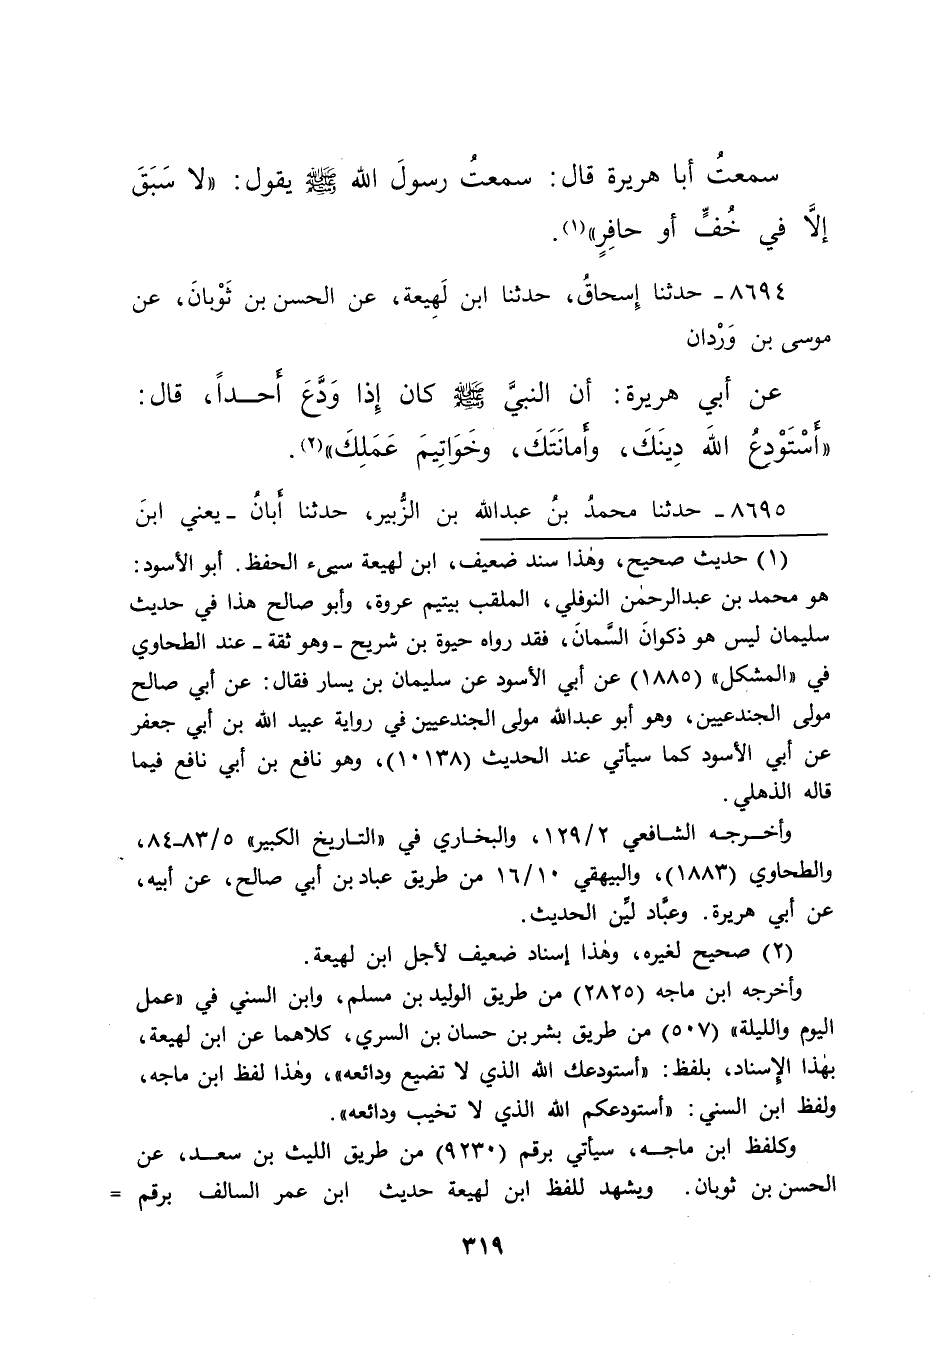 سمعتُ أبا هريرة قال: سمعتُ رسولَ الله ﷺ يقول: «لا سَبَقَ
إلَّا في خُفٍّ أو حافِرٍ»(١).
٨٦٩٤ـ حدثنا إسحاقُ، حدثنا ابن لَهِيعة، عن الحسن بن ثَوْبانَ، عن
موسى بن وَرْدان
عن أبي هريرة: أن النبيَّ ﷺ كان إذا وَدَّعَ أَحــداً، قال:
«أَسْتَوْدِعُ اللهَ دِينَكَ، وأَمانَتَكَ، وخَوَاتِيمَ عَمَلِكَ»(٢).
٨٦٩٥ـ حدثنا محمدُ بنُ عبدالله بن الزُّبير، حدثنا أَبانُ ـ يعني ابنَ
(١) حديث صحيح، وهٰذا سند ضعيف، ابن لهيعة سيىء الحفظ. أبو الأسود:
هو محمد بن عبدالرحمٰن النوفلي، الملقب بيتيم عروة، وأبو صالح هذا في حديث
سليمان ليس هو ذكوانَ السَّمانَ، فقد رواه حيوة بن شريح ـ وهو ثقة ـ عند الطحاوي
في «المشكل» (١٨٨٥) عن أبي الأسود عن سليمان بن يسار فقال: عن أبي صالح
مولى الجندعيين، وهو أبو عبدالله مولى الجندعيين في رواية عبيد الله بن أبي جعفر
عن أبي الأسود كما سيأتي عند الحديث (١٠١٣٨)، وهو نافع بن أبي نافع فيما
قاله الذهلي.
وأخــرجــه الشافعي ١٢٩/٢، والبخاري في «التاريخ الكبير» ٨٣/٥ـ٨٤،
والطحاوي (١٨٨٣)، والبيهقي ١٦/١٠ من طريق عباد بن أبي صالح، عن أبيه،
عن أبي هريرة. وعبَّاد ليِّن الحديث.
(٢) صحيح لغيره، وهٰذا إسناد ضعيف لأجل ابن لهيعة.
وأخرجه ابن ماجه (٢٨٢٥) من طريق الوليد بن مسلم، وابن السني في «عمل
اليوم والليلة» (٥٠٧) من طريق بشر بن حسان بن السري، كلاهما عن ابن لهيعة،
بهٰذا الإسناد، بلفظ: «أستودعك الله الذي لا تضيع ودائعه»، وهٰذا لفظ ابن ماجه،
ولفظ ابن السني: «أستودعكم الله الذي لا تخيب ودائعه».
وكلفظ ابن ماجــه، سيأتي برقم (٩٢٣٠) من طريق الليث بن سعــد، عن
الحسن بن ثوبان. ويشهد للفظ ابن لهيعة حديث ابن عمر السالف برقم =
٣١٩